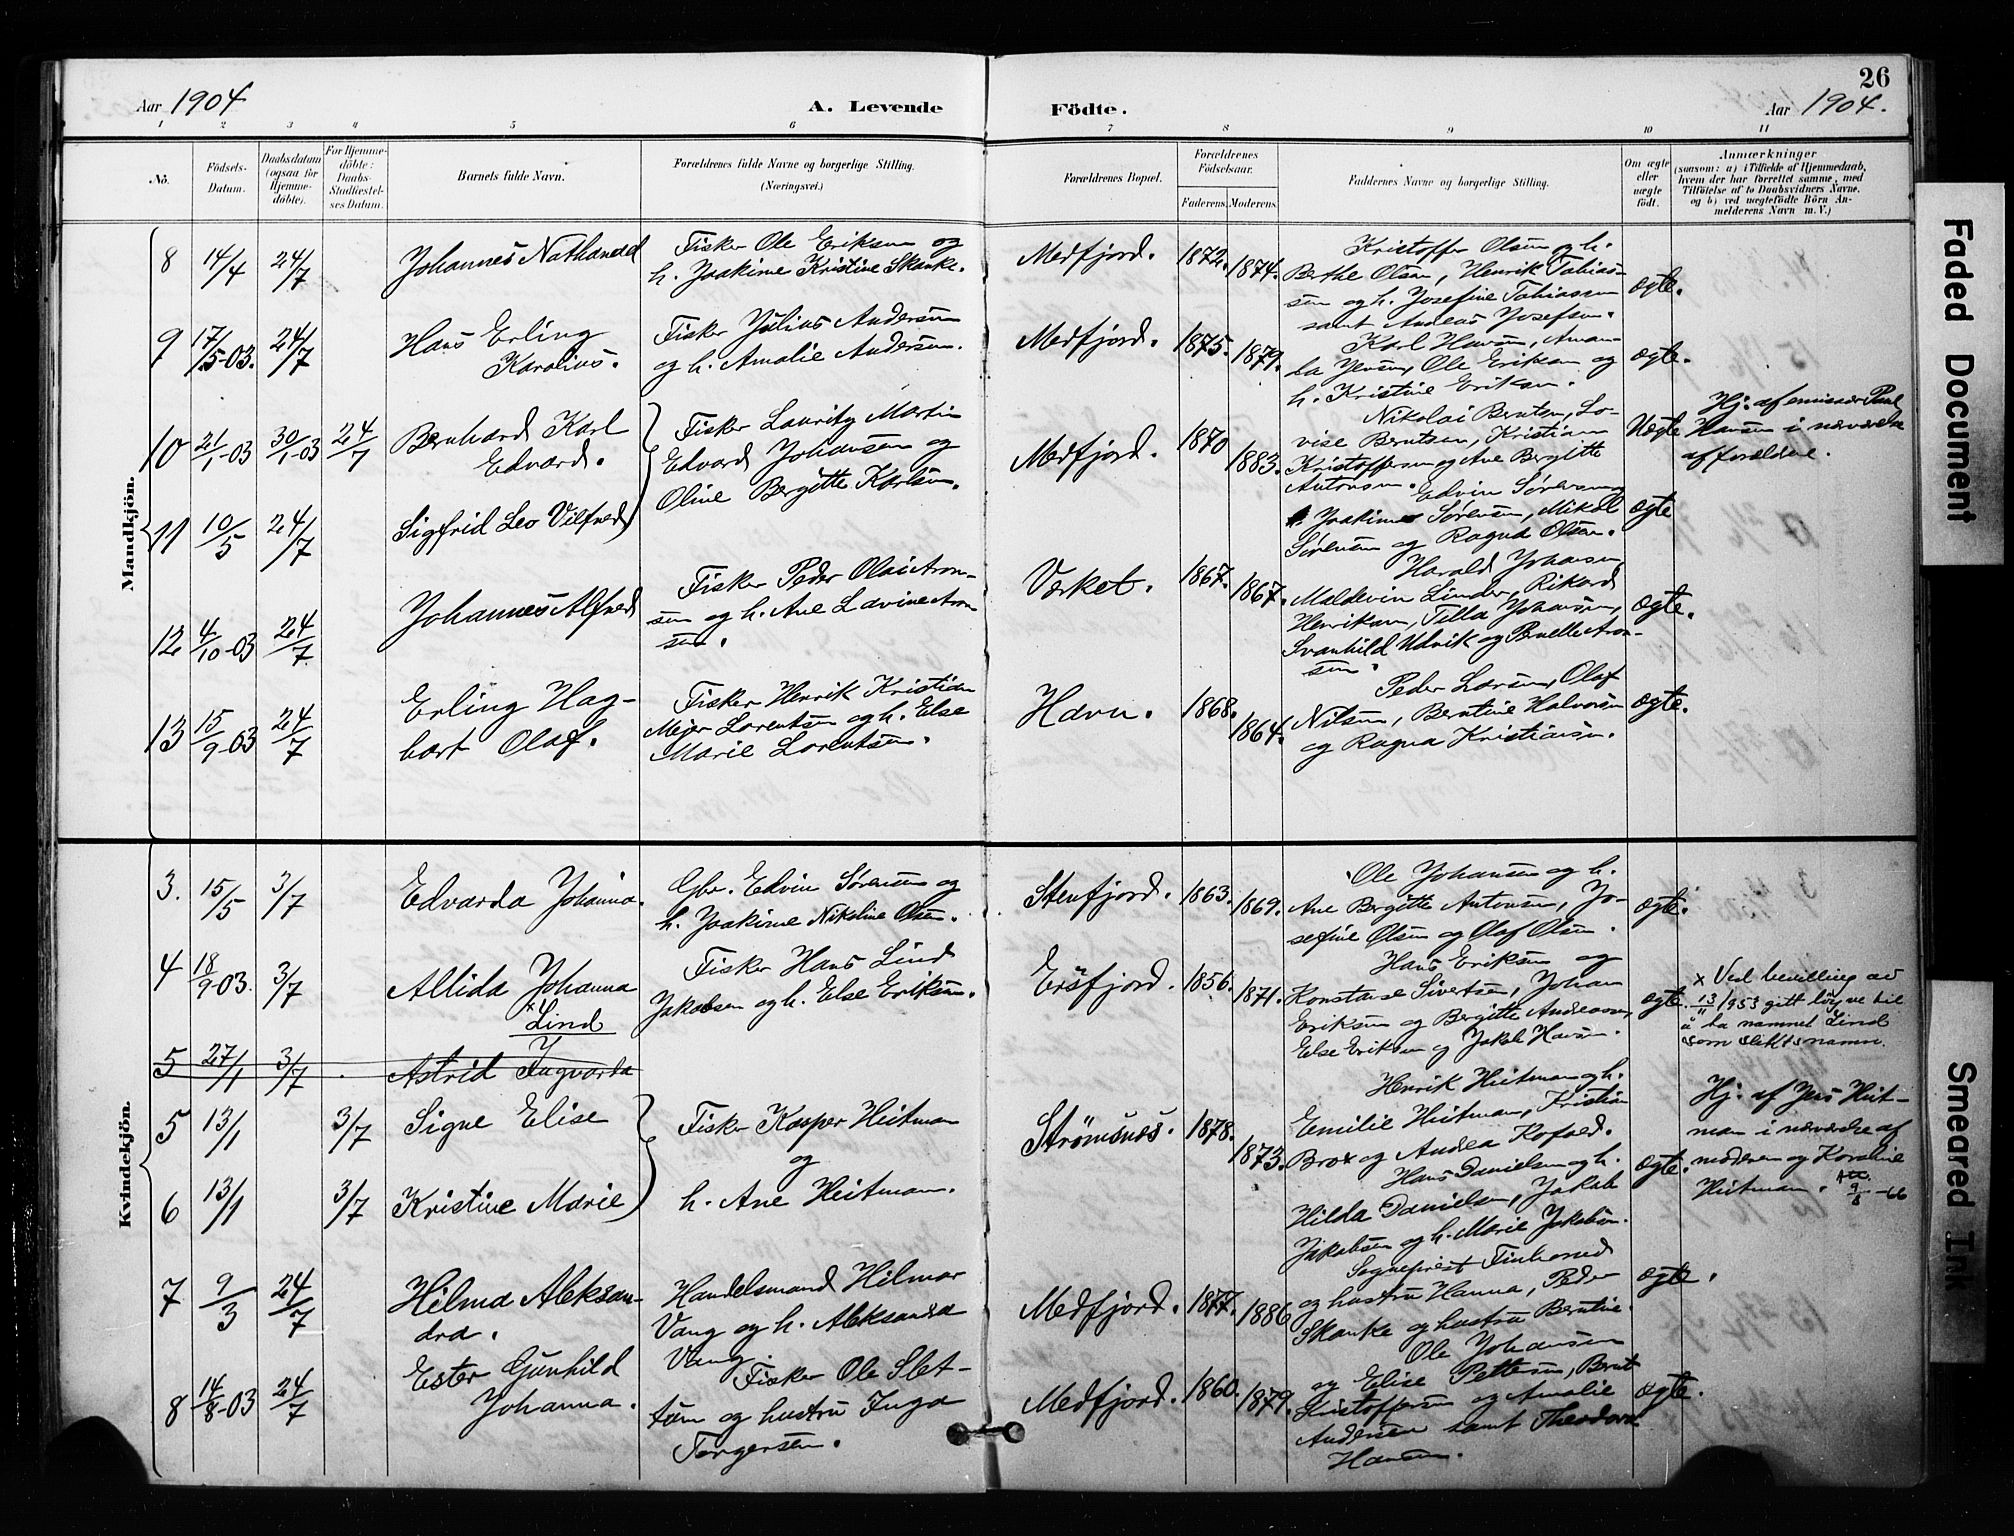 26
Aar 1904
A. Levende Födte.
Aar 1904.
1 2 3 4 5 6 7 8 9 10 11
No.
Födsels-Datum.
Daabsdatum (ogsaa for Hjemme-döbte).
For Hjemme-döbte: Daabs-Stadfæstel-ses Datum.
Barnets fulde Navn.
Forældrenes fulde Navne og borgerlige Stilling. (Næringsvei.)
Forældrenes Bopæl.
Forældrenes Födselsaar.
Faderens. Moderens.
Faddernes Navne og borgerlige Stilling.
Om ægte eller uægte födt.
Anmærkninger
(saasom: a) i Tilfælde af Hjemmedaab,
hvem der har forrettet samme, med
Tilföielse af to Daabsvidners Navne,
og b) ved uægtefödte Börn An-
melderens Navn m. V.)
Mandkjön.
8 14/4 24/7 Johannes Nathanael
Fisker Ole Eriksen og
h. Joakime Kristine Skanke.
Medfjord. 1872. 1874.
Kristoffer Olsen og h.
Berthe Olsen, Henrik Tobias-
sen og h. Josefine Tobiassen
samt Andreas Josefsen.
ægte.
9 17/5-03. 24/7 Hans Erling
Karolius.
Fisker Julius Andersen
og h. Amalie Andersen.
Medfjord. 1875. 1879.
Karl Hansen, Aman-
da Jensen, Ole Eriksen og
h. Kristine Eriksen.
ægte.
10 21/1-03 30/1-03 24/7 Bernhard Karl
Edvard.
Fisker Lauritz Martin
Edvard Johansen og
Oline Bergitte Karlsen.
Medfjord. 1870 1883.
Nikolai Berntsen, Lo-
vise Berntsen, Kristian
Kristoffersen og Ane Bergitte
Antonsen.
Uægte
Hj. af emissær Paul
Hansen i nærværelse
af forældrene.
11 10/5 24/7 Sigfrid Leo Vilfred
Edvin Sørensen,
Joakime Sørensen, Mikal
Sørensen og Ragna Olsen.
ægte
12 4/10-03 24/7 Johannes Alfred
Fisker Peder Olai Aron-
sen og h. Ane Lavine Aron-
sen.
Værket. 1867. 1867.
Harald Johansen,
Maldevin Linder, Rikard
Henriksen, Tilla Johansen,
Svanhild Udvik og Pernelle Aron-
sen.
ægte.
13 15/9-03 24/7 Erling Hag-
bart Olaf.
Fisker Henrik Kristian
Mejer Lorentsen og h. Else
Marie Lorentsen.
Havn. 1868. 1864.
Peder Larsen, Olaf
Nilsen, Berntine Halvorsen
og Ragna Kristiansen.
ægte.
Kvindekjön.
3. 15/5 3/7 Edvarda Johanna.
Gbr. Edvin Sørensen og
h. Joakime Nikoline Olsen.
Stenfjord. 1863. 1869.
Ole Johansen og h.
Ane Bergitte Antonsen, Jo-
sefine Olsen og Olaf Olsen.
ægte.
4 18/9-03. 3/7 Allida Johanna
x Lind
Fisker Hans Lind
Jakobsen og h. Else Eriksen.
Ersfjord. 1856. 1871.
Hans Eriksen og
Konstanse Sivertsen, Johan
Eriksen og Bergitte Andreassen,
Else Eriksen og Jakob Hansen.
ægte.
x Ved bevilling av
13/11 1953 gitt løyve til
å ta namnet Lind
som slektsnamn.
5 27/1 3/7 Astrid Ingvarda
5 13/1 3/7 Signe Elise
Fisker Kasper Heitman
og
h. Ane Heitman.
Strømsnes. 1878. 1873.
Henrik Heitman og h.
Emilie Heitman, Kristian
Brox og Andrea Kofoed.
Hj. af Jens Heit-
man i nærværelse af
moderen og Karoline
Heitman. 9/8-66
6 13/1 3/7 Kristine Marie
Hans Danielsen og h.
Hilda Danielsen, Jakob
Jakobsen og h. Marie Jakobsen.
ægte.
7 9/3 24/7 Hilma Aleksan-
dra.
Handelsmand Hilmar
Vang og h. Aleksandra
Vang.
Medfjord. 1877. 1886
Sogneprest
og hustru Hanna, Peder
Skanke og hustru Berntine.
ægte.
8 14/8-03 24/7 Ester Gunhild
Johanna.
Fisker Ole Slet-
tøm og hustru Inga
Torgersen.
Medfjord. 1860. 1879.
Ole Johansen
og Elise Pettersen, Bernt
Kristoffersen og Amalie
Andersen samt Theodora
Hansen.
ægte.
Faded Document
Smeared Ink